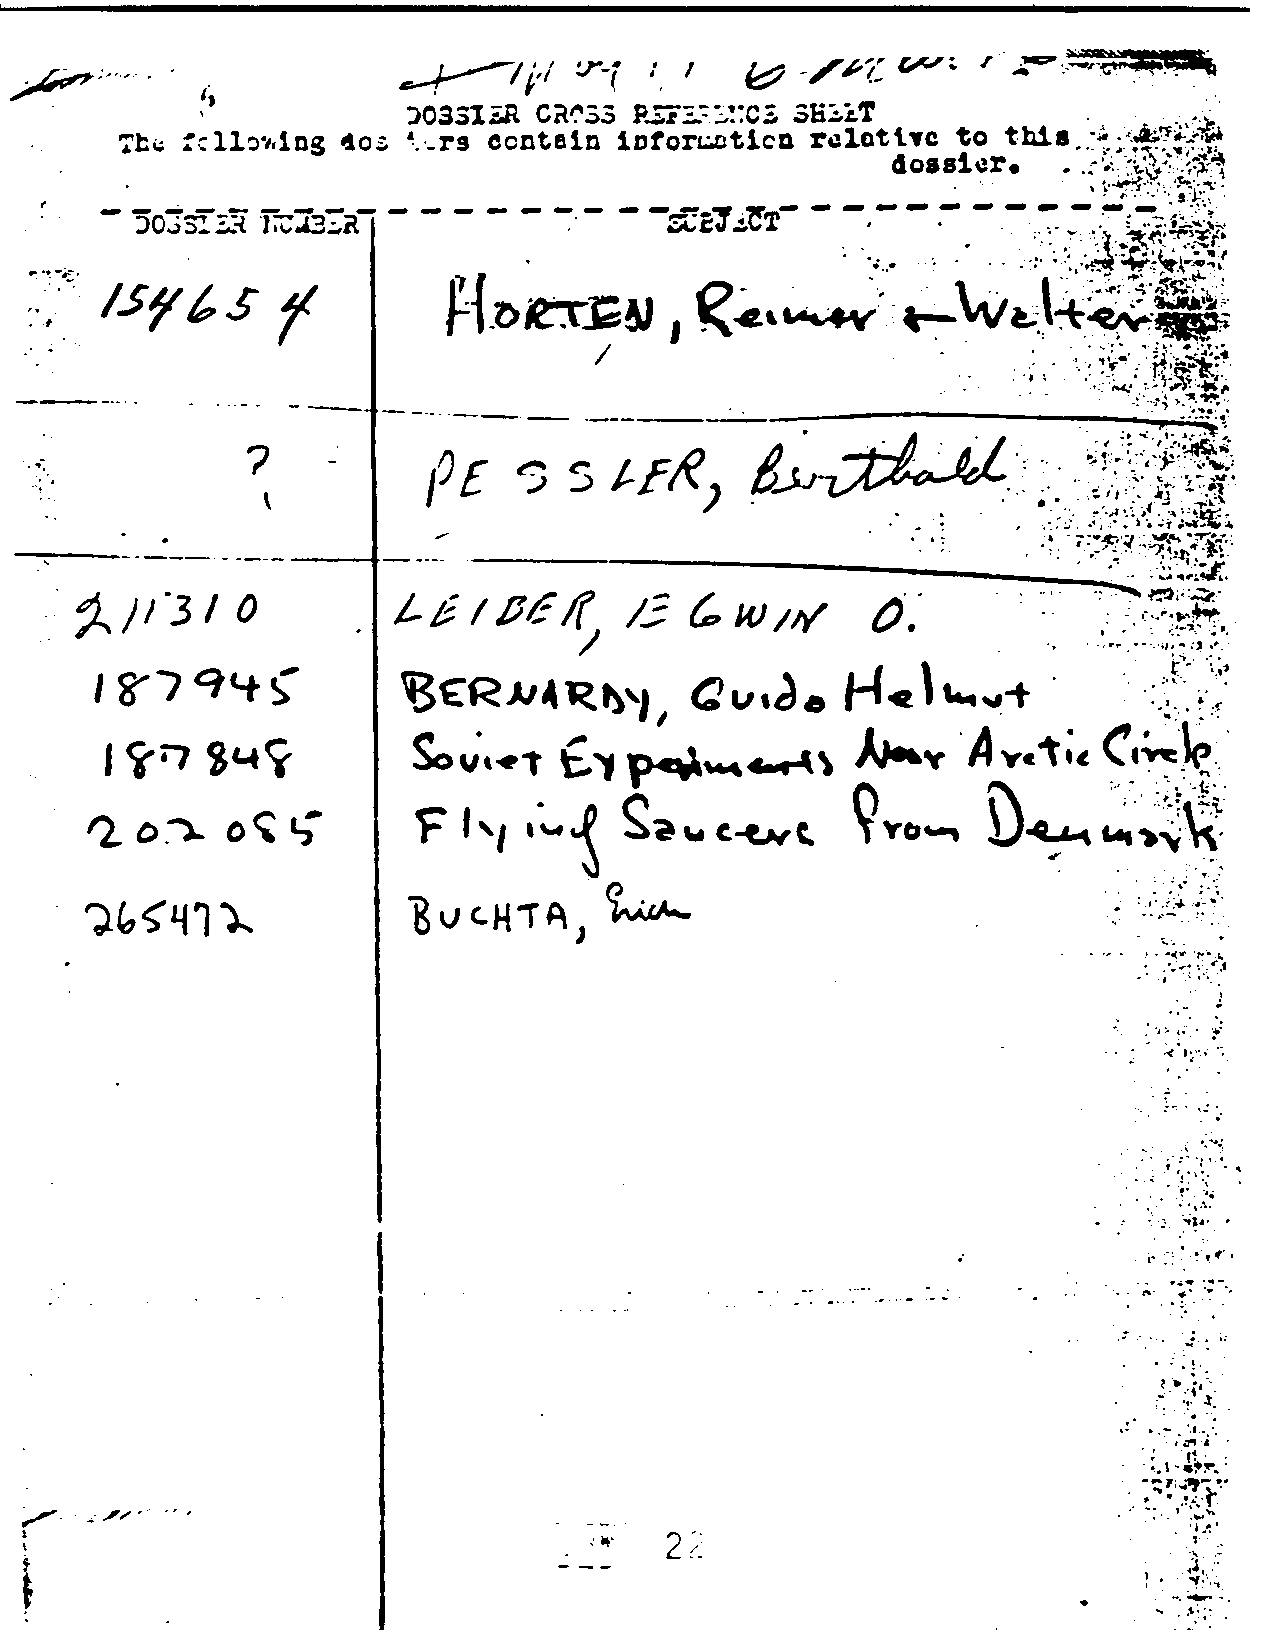 DOSSIER CROSS REFERENCE SHEET
The following dossiers contain information relative to this
dossier.
DOSSIER NUMBER SUBJECT
154654 HORTEN, Reimar + Walter
? PESSLER, Berthald
211310 LEIBER, EGWIN O.
187945 BERNARDY, Guido Helmut
187848 Soviet Experiments Near Arctic Circle
202085 Flying Saucers from Denmark
265472 BUCHTA, Erich
22